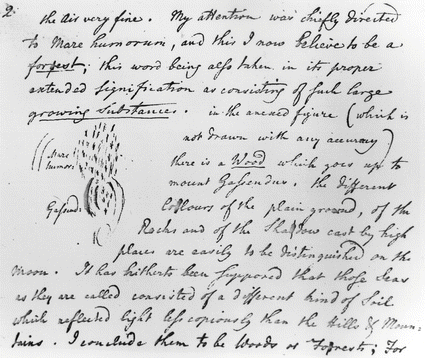 2
the Air very fine. My attention was chiefly directed
to Mare humorum, and this I now believe to be a
forrest; this word being also taken in its proper
extended signification as consisting of such large
growing Substances. in the anexed figure (which is
not drawn with any accuracy)
Mare
humor:
there is a Wood which goes up to
mount Gassendus. the different
Gassend:
Collours of the plain ground, of the
Rocks and of the Shaddow cast by high
places are easily to be distinguished on the
moon. It has hitherto been supposed that those Seas
as they are called consisted of a different kind of Soil
which reflected light less copiously than the Hills & Moun-
tains. I conclude them to be Woods or Forrests; For